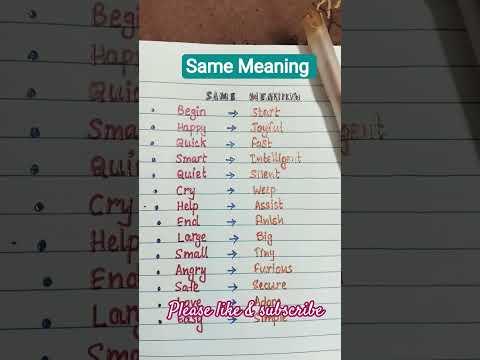 Same Meaning
SAME MEANING
Begin → Start
Happy → Joyful
Quick → Fast
Smart → Intelligent
Quiet → Silent
Cry → Weep
Help → Assist
End → Finish
Large → Big
Small → Tiny
Angry → Furious
Safe → Secure
Please like & subscribe
Easy → Simple